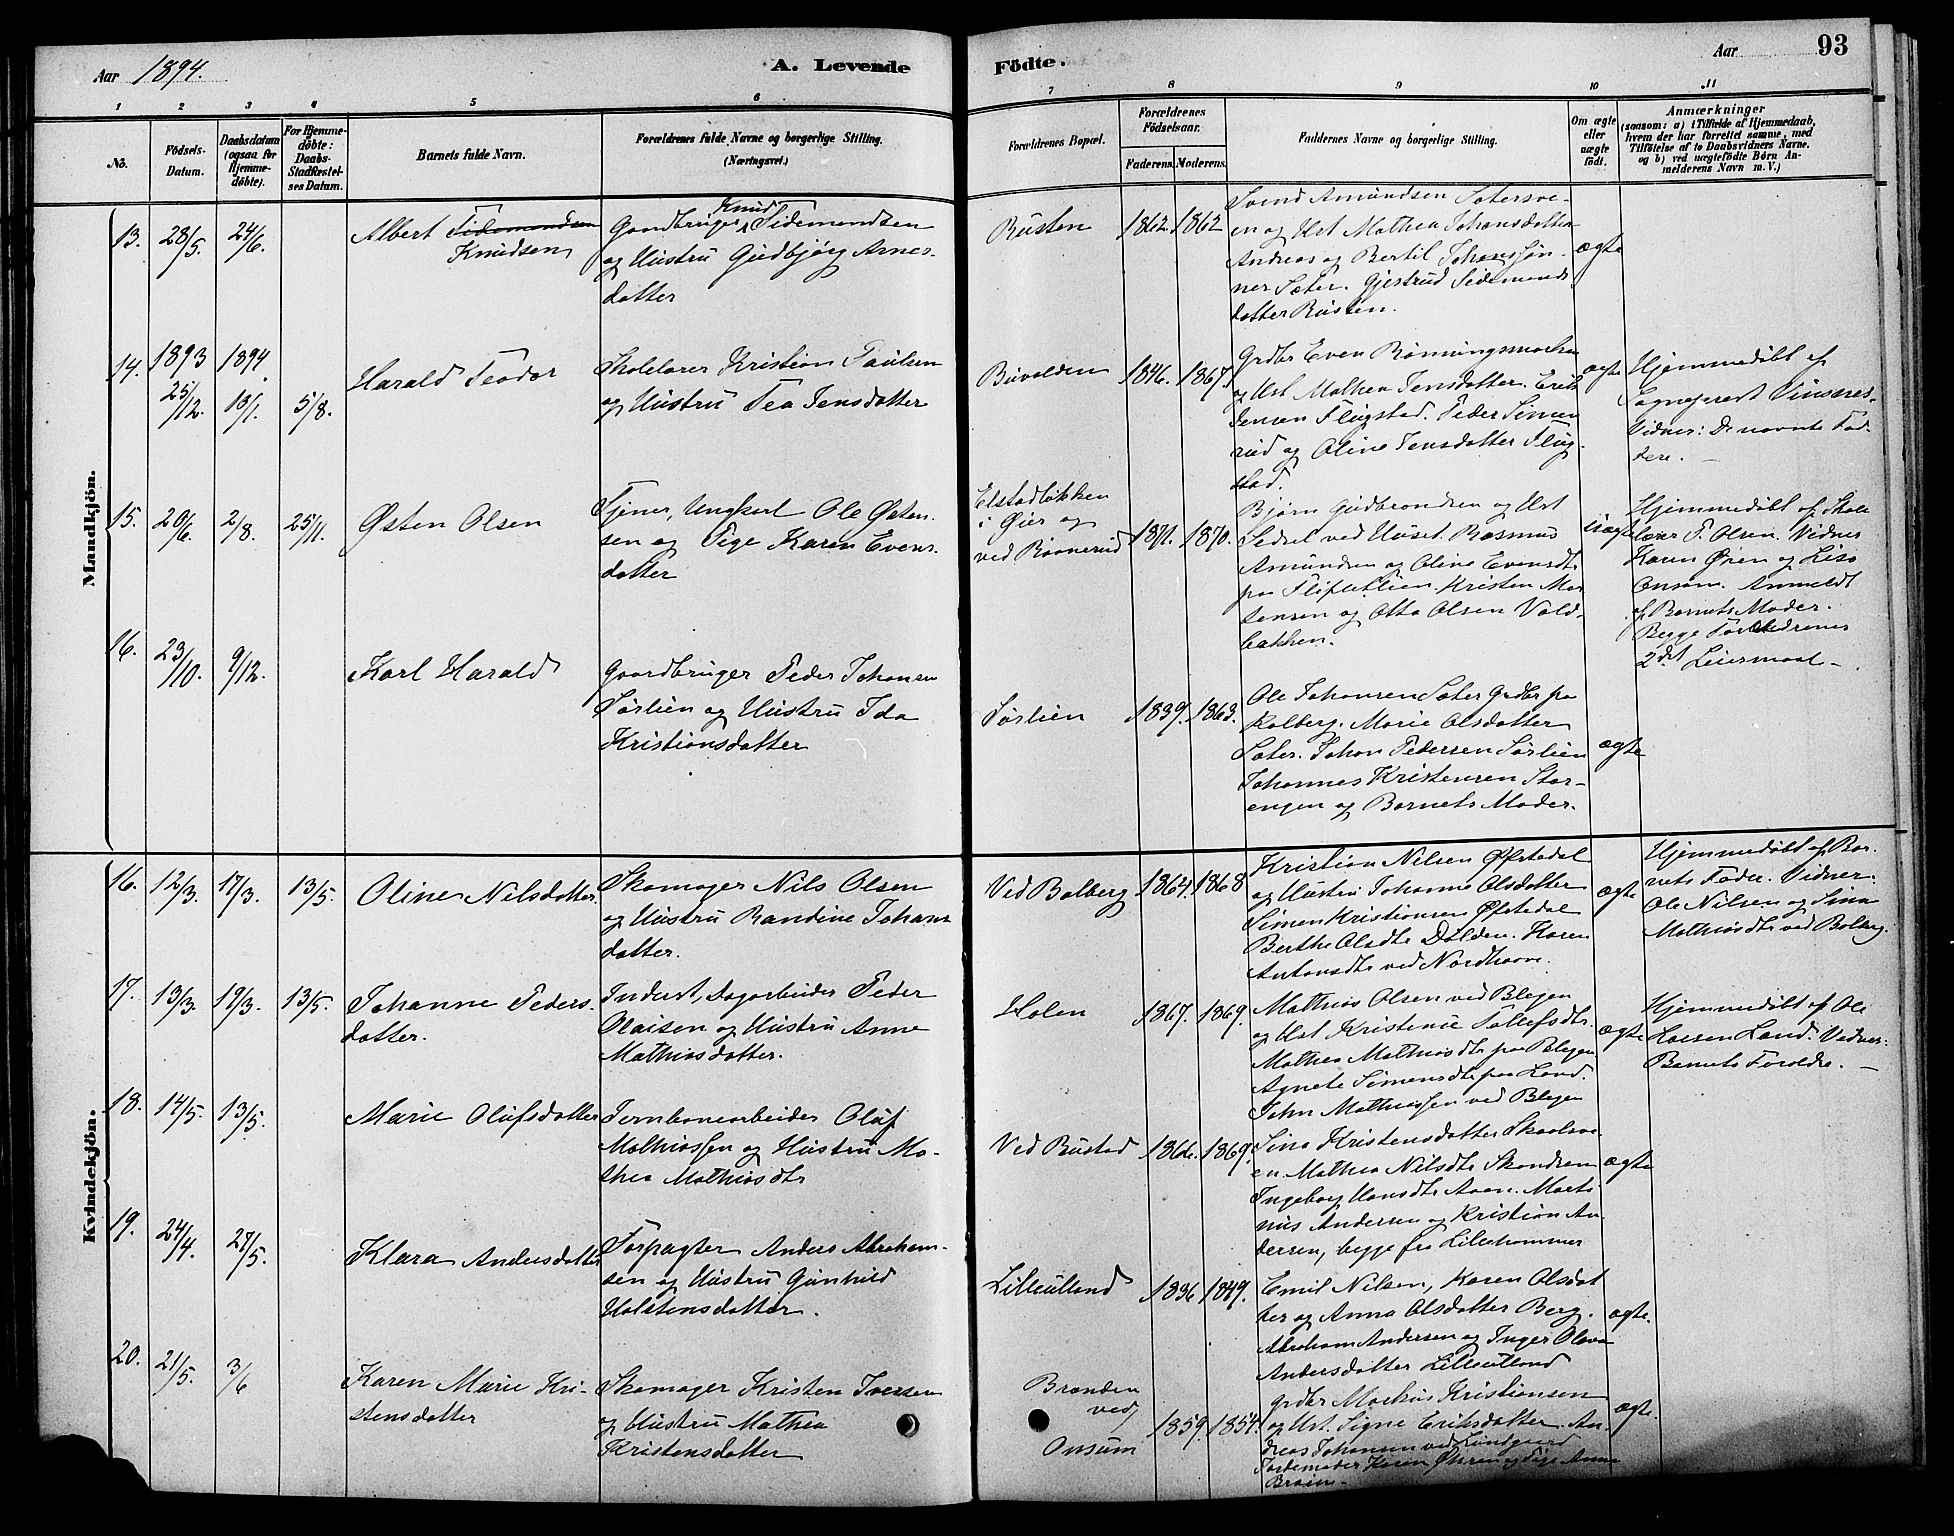 Aar 1894.
A. Levende
Födte.
Aar
93
1 2 3 4 5 6 7 8 9 10 11
No.
Födsels-
Datum.
Daabsdatum
(ogsaa for
Hjemme-
döbte).
For Hjemme-
döbte:
Daabs-
Stadfæstel-
ses Datum.
Barnets fulde Navn.
Forældrenes fulde Navne og borgerlige Stilling.
(Næringsvei.)
Forældrenes Bopæl.
Forældrenes
Födselsaar.
Faderens. Moderens.
Faddernes Navne og borgerlige Stilling.
Om ægte
eller
uægte
födt.
Anmærkninger
(saasom: a) i Tilfælde af Hjemmedaab,
hvem der har forrettet samme, med
Tilföielse af to Daabsvidners Navne.
og b) ved uægtefödte Börn An-
melderens Navn m. V.)
Mandkjön.
13. 28/5. 24/6.
Albert Tidemandsen
Knudsen
Knud
Gaardbruger Tidemandsen
og Hustru Gudbjørg Arnes-
datter
Rusten
1862. 1862
Svend Amundsen Sætersve-
en og Hst Mathea Johansdatter
Andreas og Bertil Johanssøn-
ner Sæter. Gjertrud Tidemands
datter Rusten.
ægte
14. 1893 25/12. 1894. 18/1. 5/8.
Harald Teodor
Skolelærer Kristian Paulsen
og Hustru Tea Jensdatter
Buvolden
1846. 1867.
Grdbr Even Rønningsmoen
og Hst Mathea Jensdatter. Erik
Jensen Flugstad. Peder Simen
rud og Oline Jensdatter Flug
stad.
ægte
Hjemmedøbt af
Sognepræst Vinsnes.
Vidner: De nævnte Fad-
dere. —
15. 20/6. 2/8. 25/11.
Østen Olsen
Tjener, Ungkarl Ole Østen-
sen og Pige Karen Evens-
datter
Elstadløkken
i Øier og
ved Rønnerud
1871. 1870.
Bjørn Gudbrandsen og Hst
Sedsel ved Huset. Rasmus
Amundsen og Oline Evensdtr
paa Kristen Mor
tensen og Otto Olsen Vold-
bakken.
uægte
Hjemmedøbt af Skole
lærer P. Olsen. Vidner
Karen Øien og Lisa
Onsum. Anmeldt
af Barnets Moder.
Begge Forældrenes
2det Leiermaal —
16. 23/10. 9/12.
Karl Harald
Gaardbruger Peder Johansen
Sørlien og Hustru Ida
Kristiansdatter
Sørlien
1839. 1863.
Ole Johansen Sæter Grdbr paa
Kalberg. Marie Olsdatter
Sæter. Johan Pedersen Sørlien
Johannes Kristensen Stor-
engen og Barnets Moder.
ægte
Kvindekjön.
16. 12/3. 17/3. 13/5.
Oline Nilsdatter.
Skomager Nils Olsen
og Hustru Randine Johans
datter.
Ved Bolberg
1864. 1868
Kristian Nilsen Øfstedal
og Hustru Johanne Olsdatter
Simen Kristiansen Øfstedal
Berthe Olsdtr Dølden. Karen
Antonsdtr ved Nordhove.
ægte
Hjemmedøbt af Bar-
nets Fader. Vidner:
Ole Nilsen og Sina
Mathiasdtr ved Bolberg.
17. 13/3. 19/3. 13/5.
Johanne Peders-
datter.
Inderst, Dagarbeider Peder
Olaisen og Hustru Anne
Mathiasdatter.
Holen
1867. 1869.
Mathias Olsen ved Blegen
og Hst Kristense Tollefsdtr.
Mathea Mathiasdtr paa Blegen
Agnete Simensdtr paa Land.
John Mathiassen ved Blegen
ægte
Hjemmedøbt af Ole
Larsen Land. Vidner:
Barnets Forældre. —
18. 14/5. 13/5.
Marie Olufsdatter
Jernbanearbeider Oluf
Mathiassen og Hustru Ma-
thea Mathiasdtr
Ved Bustad
1866. 1869.
Sina Kristensdatter Skaalsve-
en. Mathea Nilsdtr Skandsen
Ingeborg Hansdtr Aaen. Marti
nus Andersen og Kristian An
dersen, begge fra Lillehammer
ægte
19. 24/4. 27/5.
Klara Andersdatter
Forpagter Anders Abraham-
sen og Hustru Gunhild
Holstensdatter.
Lilleulland
1836 1849.
Emil Nilsen, Karen Olsdat
ter og Anna Olsdatter Berg.
Abraham Andersen og Inger Olava
Andersdatter Lilleulland
ægte.
20. 21/5. 3/6
Karen Marie Kri-
stensdatter
Skomager Kristen Iversen
og Hustru Mathea
Kristensdatter
Brænden
ved
Onsum
1859. 1854.
Grdbr Markus Kristiansen
og Hst. Signe Eriksdatter. An-
dreas Johansen ved Lundgaard
Jordemoder Karen Øhren og Pige Anne
Braien. —
ægte.